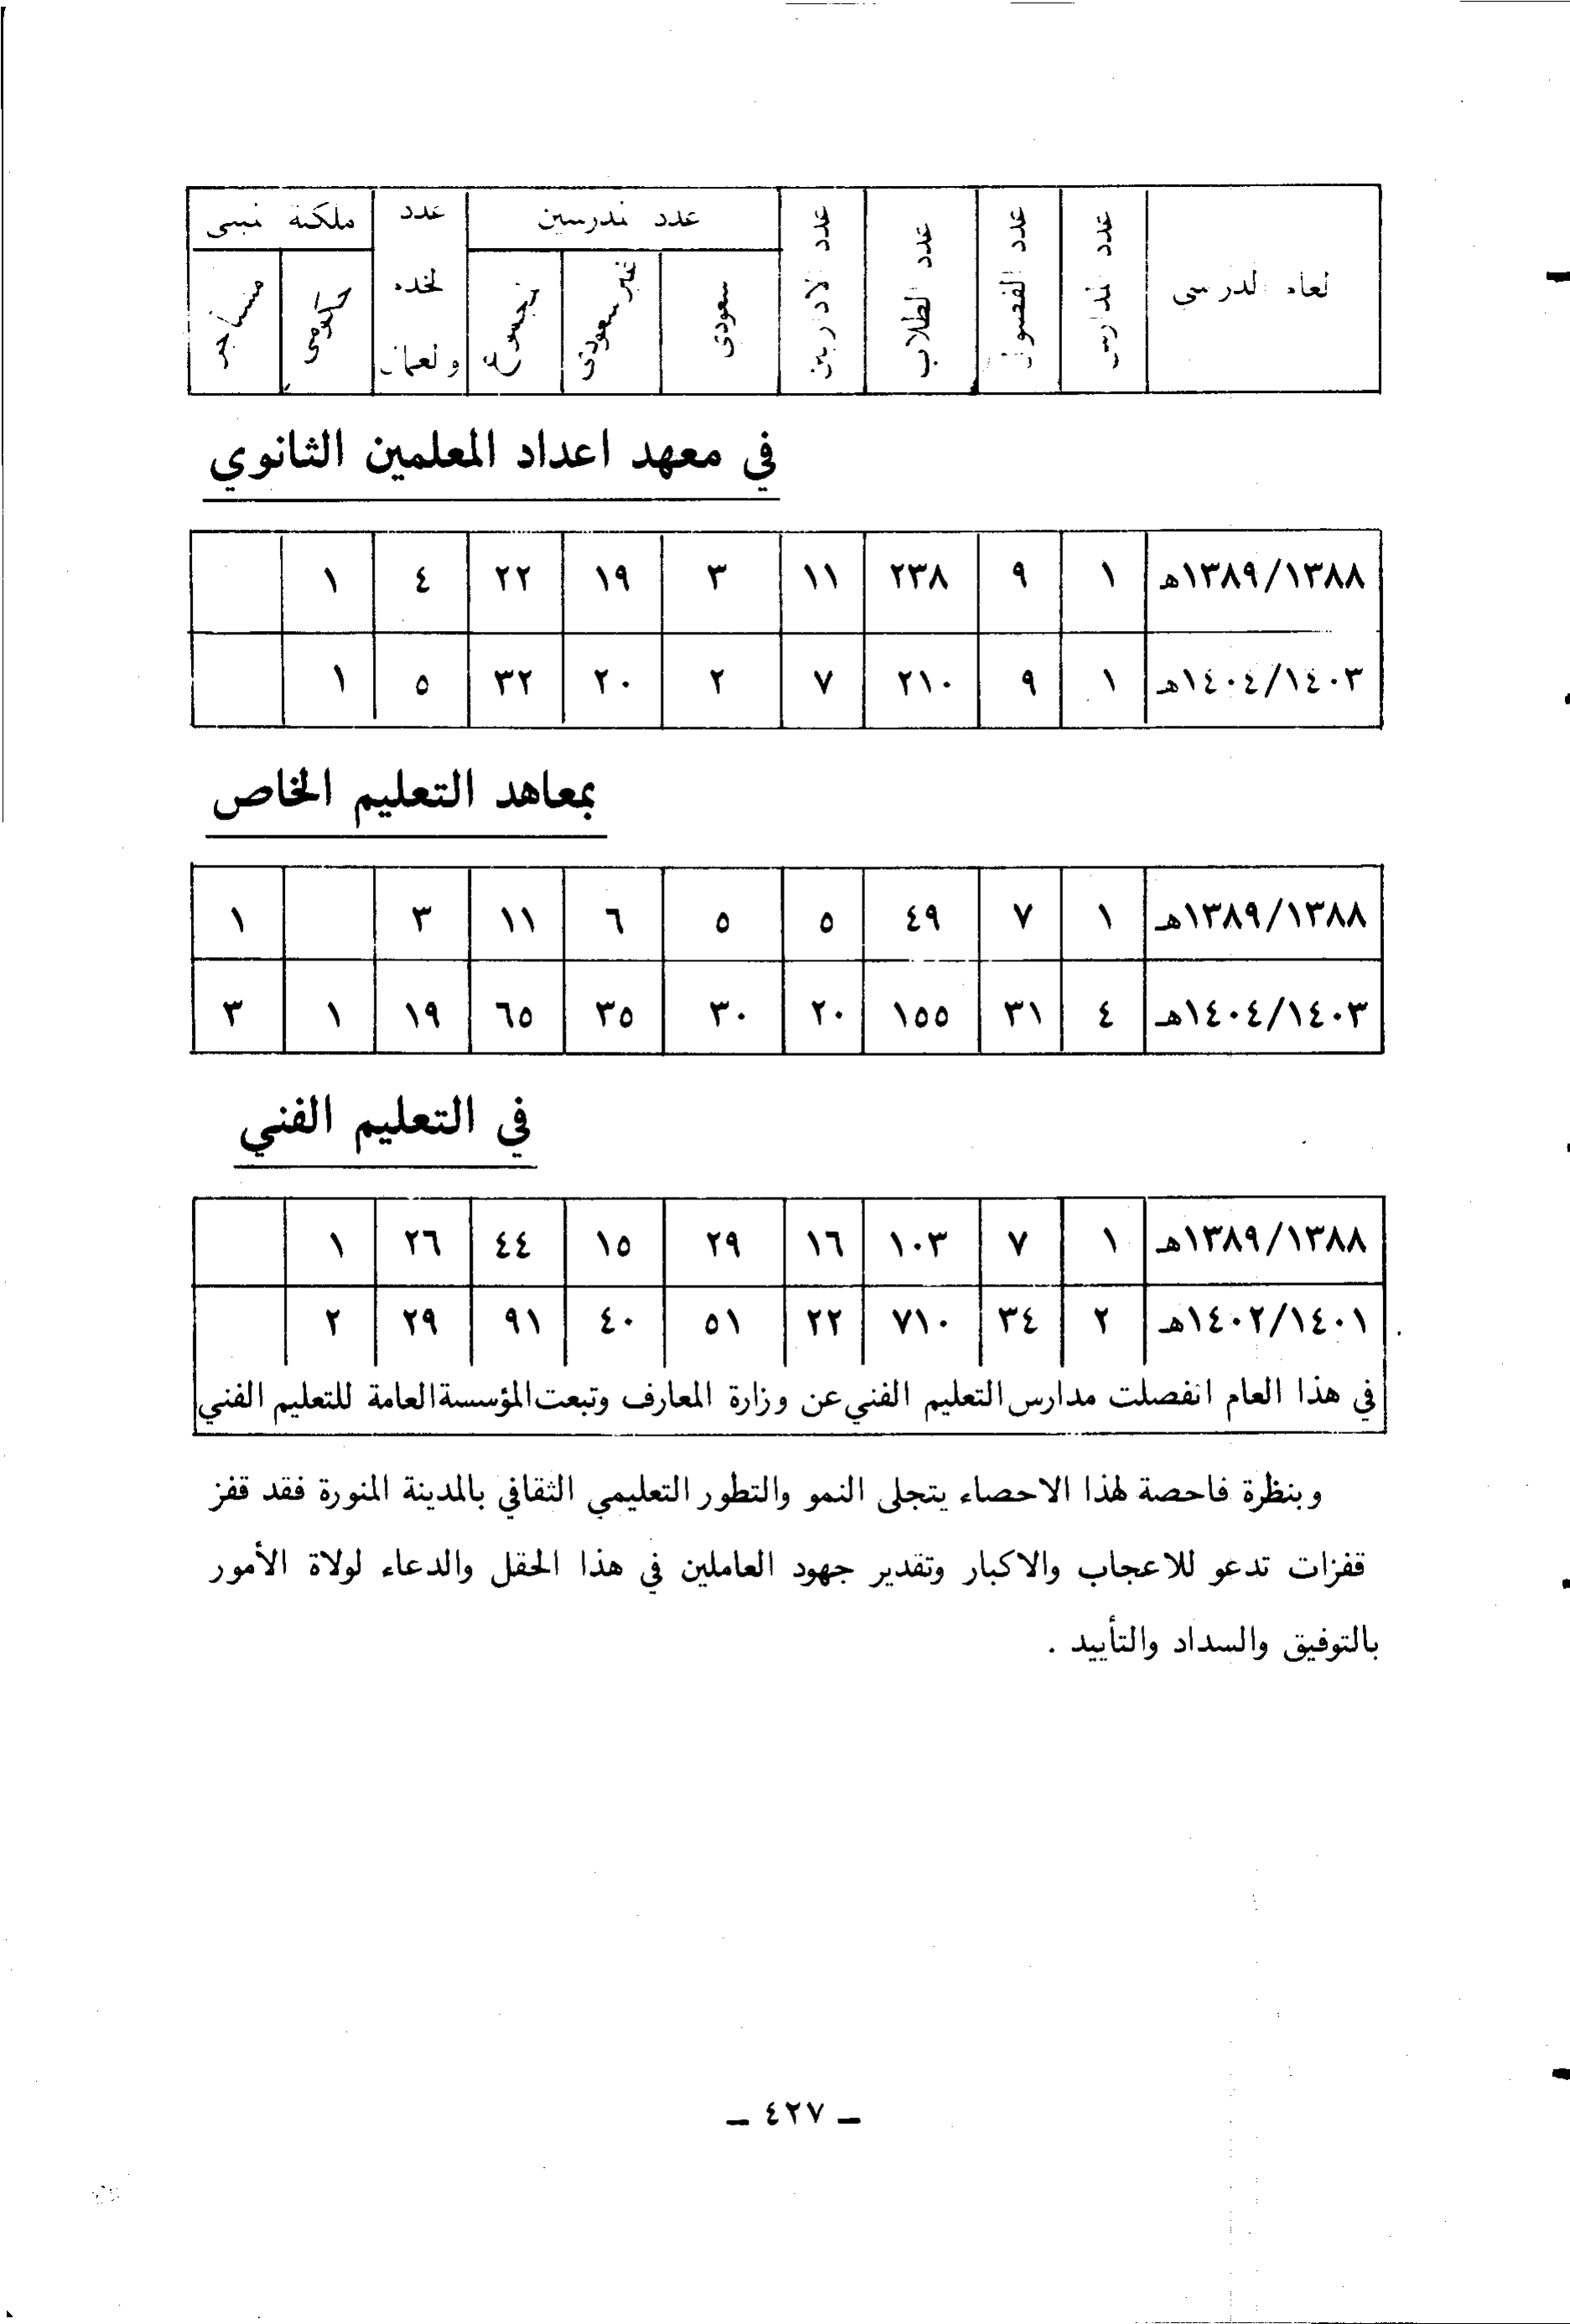 العام الدراسي عدد المدارس عدد الفصول عدد الطلاب عدد الاداريين عدد المدرسين عدد الخدم والعمال ملكية المبنى
سعودي غير سعودي المجموع حكومي مستأجر
في معهد اعداد المعلمين الثانوي
١٣٨٩/١٣٨٨هـ ١ ٩ ٢٣٨ ١١ ٣ ١٩ ٢٢ ٤ ١
١٤٠٤/١٤٠٣هـ ١ ٩ ٢١٠ ٧ ٢ ٢٠ ٣٢ ٥ ١
بمعاهد التعليم الخاص
١٣٨٩/١٣٨٨هـ ١ ٧ ٤٩ ٥ ٥ ٦ ١١ ٣ ١
١٤٠٤/١٤٠٣هـ ٤ ٣١ ١٥٥ ٢٠ ٣٠ ٣٥ ٦٥ ١٩ ١ ٣
في التعليم الفني
١٣٨٩/١٣٨٨هـ ١ ٧ ١٠٣ ١٦ ٢٩ ١٥ ٤٤ ٢٦ ١
١٤٠٢/١٤٠١هـ ٢ ٣٤ ٧١٠ ٢٢ ٥١ ٤٠ ٩١ ٢٩ ٢
في هذا العام انفصلت مدارس التعليم الفني عن وزارة المعارف وتبعت المؤسسة العامة للتعليم الفني
وبنظرة فاحصة لهذا الاحصاء يتجلى النمو والتطور التعليمي الثقافي بالمدينة المنورة فقد قفز
قفزات تدعو للاعجاب والاكبار وتقدير جهود العاملين في هذا الحقل والدعاء لولاة الأمور
بالتوفيق والسداد والتأييد .
ـ ٤٢٧ ـ